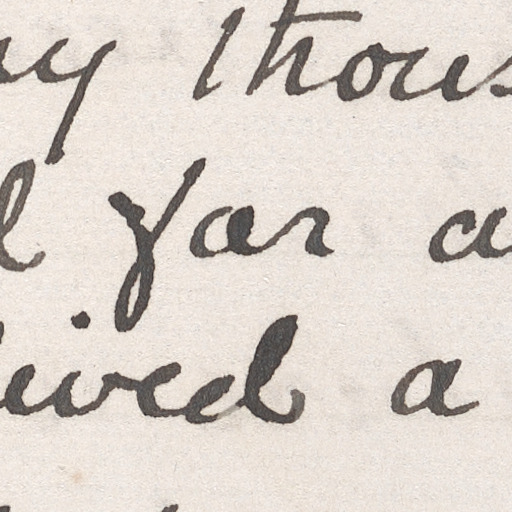 ny thous
l far a
lived a